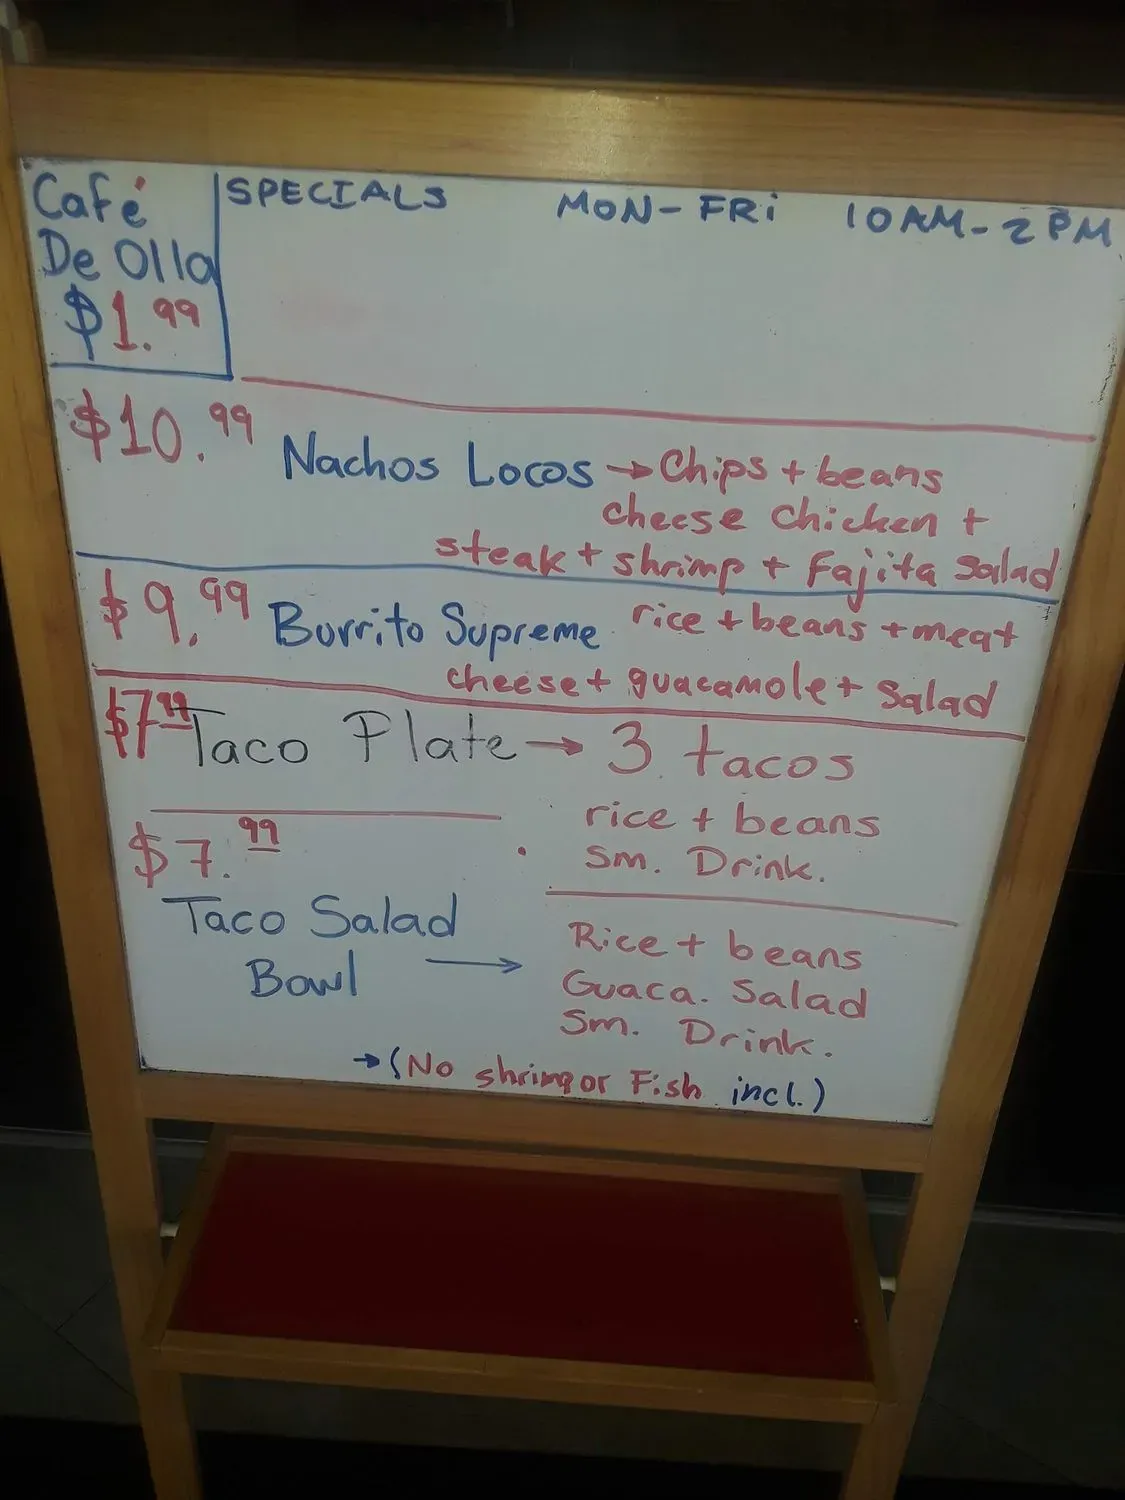 Café
De Olla
$1.99
SPECIALS MON-FRi 10AM-2PM
$10.99 Nachos Locos → Chips + beans
cheese chicken +
steak + shrimp + Fajita Salad
$9.99 Burrito Supreme rice + beans + meat
cheese + guacamole + Salad
$7.99 Taco Plate → 3 tacos
rice + beans
Sm. Drink.
$7.99
Taco Salad
Bowl →
Rice + beans
Guaca. Salad
Sm. Drink.
→ (No shrimp or Fish incl.)